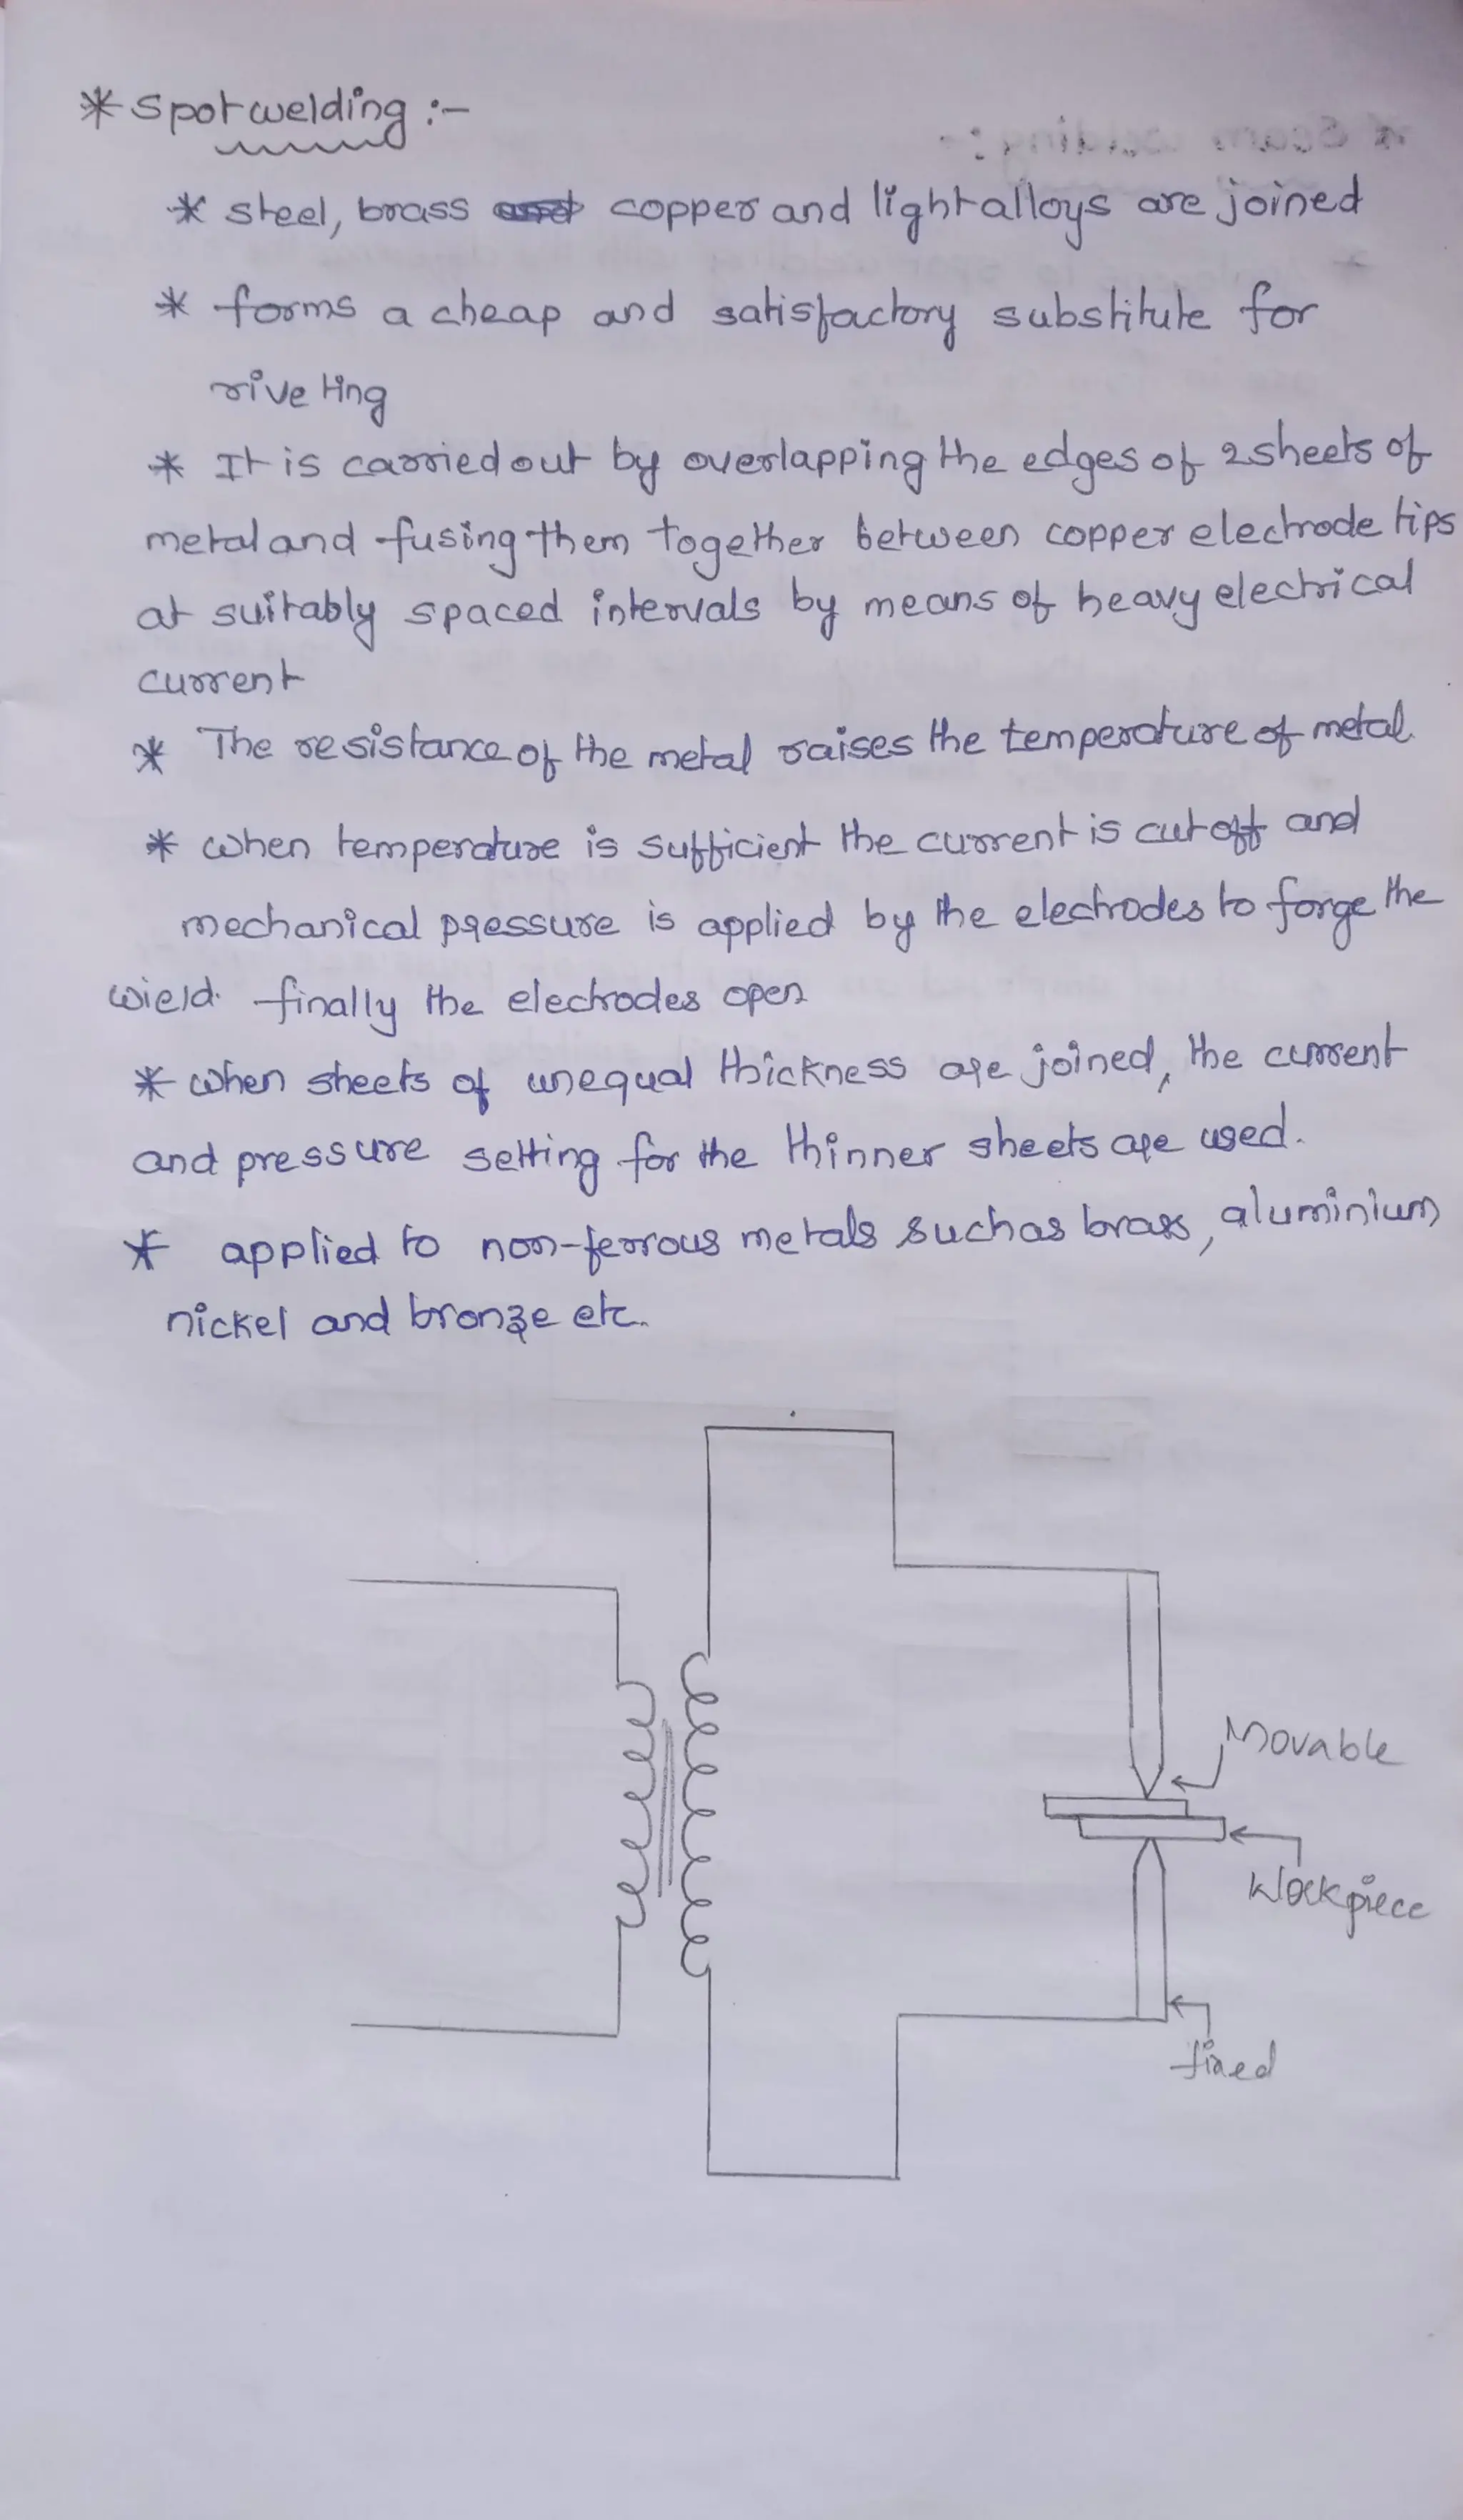 * Spot welding :-
* steel, brass copper and light alloys are joined
* forms a cheap and satisfactory substitute for
riveting
* It is carried out by overlapping the edges of 2 sheets of
metal and fusing them together between copper electrode tips
at suitably spaced intervals by means of heavy electrical
current
* The resistance of the metal raises the temperature of metal.
* when temperature is sufficient the current is cut off and
mechanical pressure is applied by the electrodes to forge the
wield. finally the electrodes open
* when sheets of unequal thickness are joined, the current
and pressure setting for the thinner sheets are used.
* applied to non-ferrous metals such as brass, aluminium
nickel and bronze etc.
Movable
Workpiece
fixed